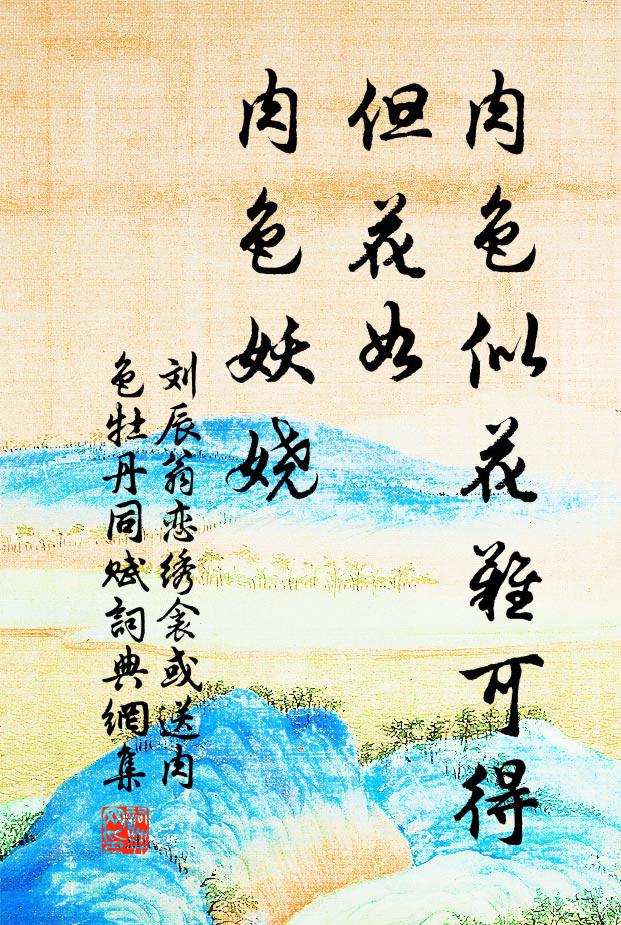 肉色似花难可得
但花如
肉色妖娆
刘辰翁恋绣衾或送肉
色牡丹同赋詞典網集